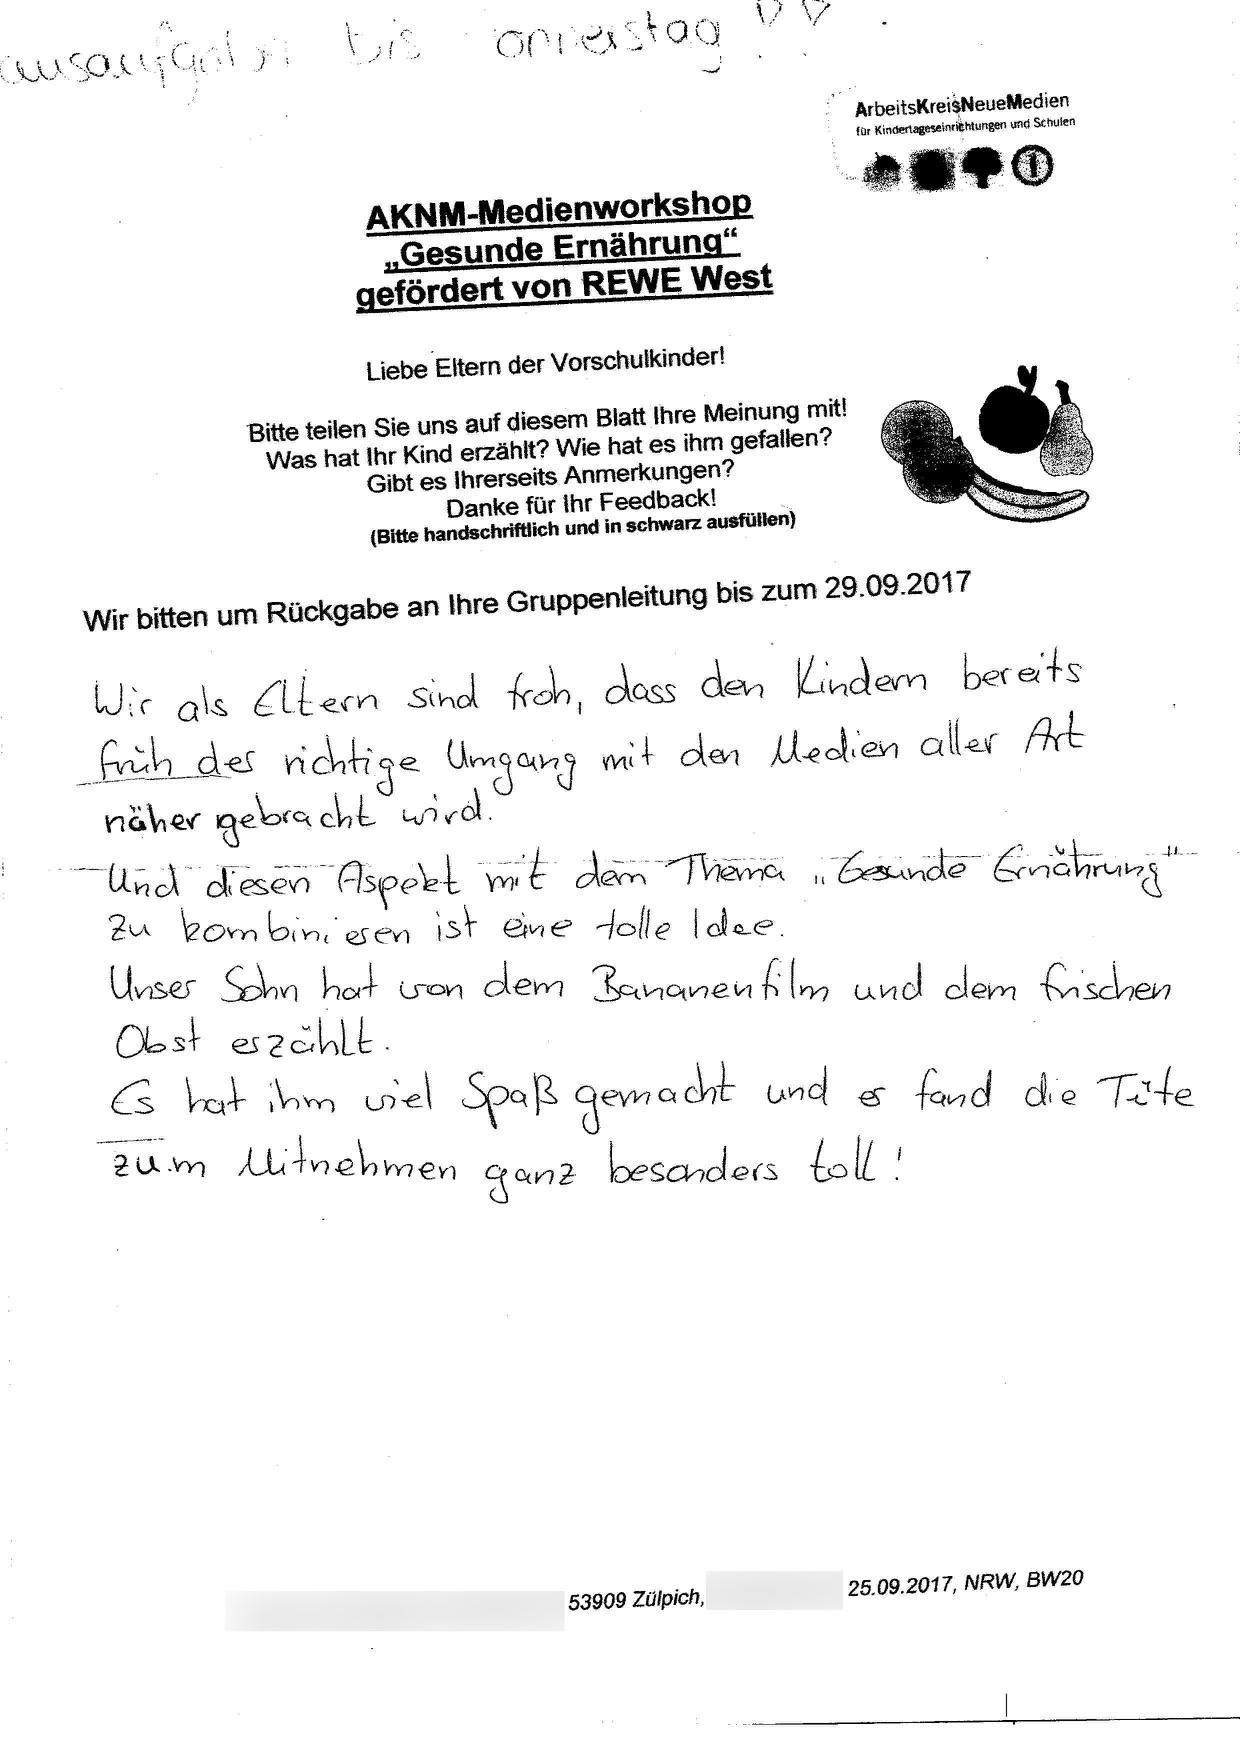 bis
ArbeitsKreisNeueMedien
für Kindertageseinrichtungen und Schulen
AKNM-Medienworkshop
„Gesunde Ernährung“
gefördert von REWE West
Liebe Eltern der Vorschulkinder!
Bitte teilen Sie uns auf diesem Blatt Ihre Meinung mit!
Was hat Ihr Kind erzählt? Wie hat es ihm gefallen?
Gibt es Ihrerseits Anmerkungen?
Danke für Ihr Feedback!
(Bitte handschriftlich und in schwarz ausfüllen)
Wir bitten um Rückgabe an Ihre Gruppenleitung bis zum 29.09.2017
Wir als Eltern sind froh, dass den Kindern bereits
früh der richtige Umgang mit den Medien aller Art
näher gebracht wird.
Und diesen Aspekt mit dem Thema „Gesunde Ernährung“
zu kombinieren ist eine tolle Idee.
Unser Sohn hat von dem Bananenfilm und dem frischen
Obst erzählt.
Es hat ihm viel Spaß gemacht und er fand die Tüte
zum Mitnehmen ganz besonders toll!
53909 Zülpich, 25.09.2017, NRW, BW20